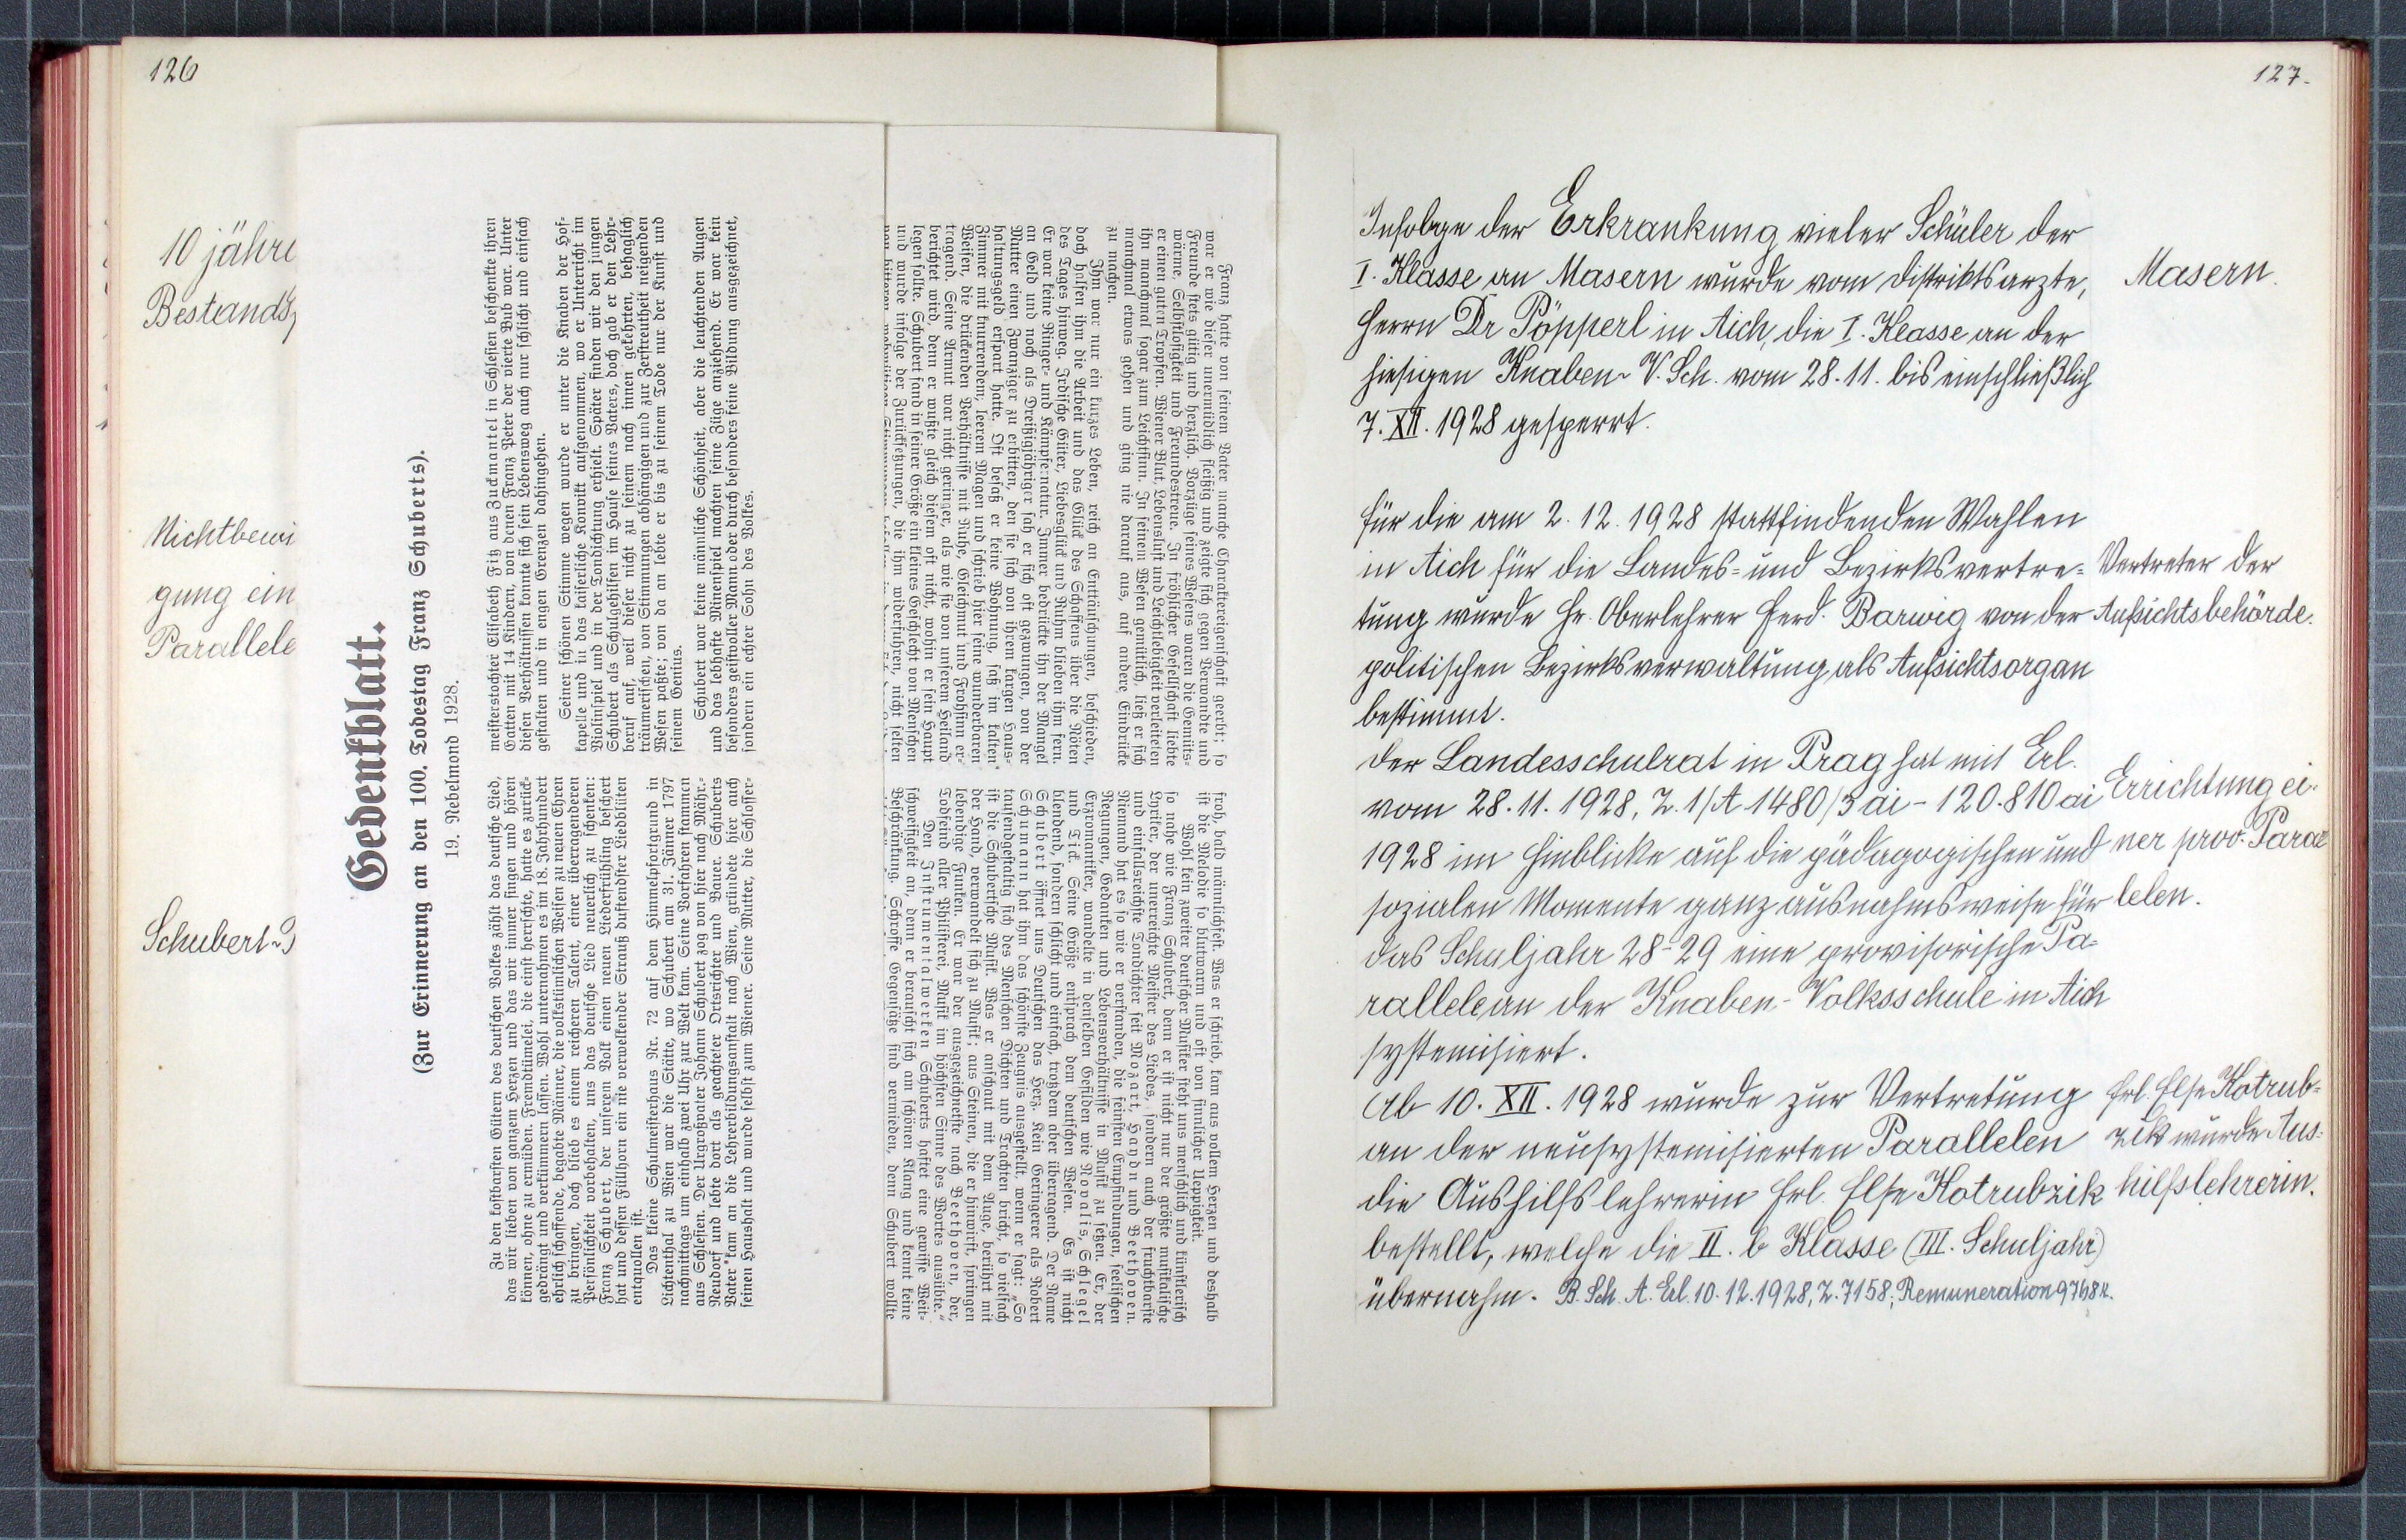 126
10 jähri
Bestands
Nichtbewi
gung ein
Parallele
Schubert-
Gedenkblatt.
(Zur Erinnerung an den 100. Todestag Franz Schuberts).
19. Nebelmond 1928.
Zu den kostbarsten Gütern des deutschen Volkes zählt das deutsche Lied,
das wir lieben von ganzem Herzen und das wir immer singen und hören
können, ohne zu ermüden. Fremdtümelei, die einst herrschte, hatte es zurück-
gedrängt und verkümmern lassen. Wohl unternahmen es im 18. Jahrhundert
ehrlich schaffende, begabte Männer, die volkstümlichen Weisen zu neuen Ehren
zu bringen, doch blieb es einem reicheren Talent, einer überragenderen
Persönlichkeit vorbehalten, uns das deutsche Lied neuerlich zu schenken:
Franz Schubert, der unserem Volk einen neuen Liederfrühling beschert
hat und dessen Füllhorn ein nie verwelkender Strauß duftendster Liedblüten
entquollen ist.
Das kleine Schulmeisterhaus Nr. 72 auf dem Himmelpfortgrund in
Lichtenthal zu Wien war die Stätte, wo Schubert am 31. Jänner 1797
nachmittags um einhalb zwei Uhr zur Welt kam. Seine Vorfahren stammen
aus Schlesien. Der Urgroßvater Johann Schubert zog von hier nach Mähr.-
Neudorf und lebte dort als geachteter Ortsrichter und Bauer. Schuberts
Vater kam an die Lehrerbildungsanstalt nach Wien, gründete hier auch
seinen Haushalt und wurde selbst zum Wiener. Seine Mutter, die Schlosser-
meisterstochter Elisabeth Fitz aus Zuckmantel in Schlesien beschenkte ihren
Gatten mit 14 Kindern, von denen Franz Peter der vierte Bub war. Unter
diesen Verhältnissen konnte sich sein Lebensweg auch nur schlicht und einfach
gestalten und in engen Grenzen dahingehen.
Seiner schönen Stimme wegen wurde er unter die Knaben der Hof-
kapelle und in das kaiserliche Konvikt aufgenommen, wo er Unterricht im
Violinspiel und in der Tondichtung erhielt. Später finden wir den jungen
Schubert als Schulgehilfen im Hause seines Vaters, doch gab er den Lehr-
beruf auf, weil dieser nicht zu seinem nach innen gekehrten, behaglich
träumerischen, von Stimmungen abhängigen und zur Zerstreutheit neigenden
Wesen paßte; von da an lebte er bis zu seinem Tode nur der Kunst und
seinem Genius.
Schubert war keine männliche Schönheit, aber die leuchtenden Augen
und das lebhafte Mienenspiel machten seine Züge anziehend. Er war kein
besonders geistvoller Mann oder durch besonders feine Bildung ausgezeichnet,
sondern ein echter Sohn des Volkes.
Franz hatte von seinem Vater manche Charaktereigenschaft geerbt; so
war er wie dieser unermüdlich fleißig und zeigte sich gegen Verwandte und
Freunde stets gütig und herzlich. Vorzüge seines Wesens waren die Gemüts-
wärme, Selbstlosigkeit und Freundestreue. In fröhlicher Gesellschaft liebte
er einen guten Tropfen. Wiener Blut, Lebenslust und Leichtlebigkeit verleiteten
ihn manchmal sogar zum Leichtsinn. In seinem Wesen gemütlich, ließ er sich
manchmal etwas gehen und ging nie darauf aus, auf andere Eindrücke
zu machen.
Ihm war nur ein kurzes Leben, reich an Enttäuschungen, beschieden,
doch halfen ihm die Arbeit und das Glück des Schaffens über die Nöten
des Tages hinweg. Irdische Güter, Liebesglück und Ruhm blieben ihm fern.
Er war keine Ringer- und Kämpfernatur. Immer bedrückte ihn der Mangel
an Geld und noch als Dreißigjähriger sah er sich oft gezwungen, von der
Mutter einen Zwanziger zu erbitten, den sie sich von ihrem kargen Haus-
haltungsgeld erspart hatte. Oft besaß er keine Wohnung, saß im kalten
Zimmer mit knurrendem, leerem Magen und schrieb hier seine wunderbaren
Weisen, die drückenden Verhältnisse mit Ruhe, Gleichmut und Frohsinn er-
tragend. Seine Armut war nicht geringer, als wie sie von unserem Heiland
berichtet wird, denn er wußte gleich diesem oft nicht, wohin er sein Haupt
legen sollte. Schubert fand in seiner Größe ein kleines Geschlecht von Menschen
und wurde infolge der Zurücksetzungen, die ihm widerfuhren, nicht selten
froh, bald männlichfest. Was er schrieb, kam aus vollem Herzen und deshalb
ist die Melodie so blutwarm und oft von sinnlicher Ueppigkeit.
Wohl kein zweiter deutscher Musiker steht uns menschlich und künstlerisch
so nahe wie Franz Schubert, denn er ist nicht nur der größte musikalische
Lyriker, der unerreichte Meister des Liedes, sondern auch der fruchtbarste
und einfallsreichste Tondichter seit Mozart, Haydn und Beethoven.
Niemand hat es so wie er verstanden, die feinsten Empfindungen, seelischen
Regungen, Gedanken und Lebensverhältnisse in Musik zu setzen. Er, der
Erzromantiker, wandelte in denselben Gefilden wie Novalis, Schlegel
und Tick. Seine Größe entsprach dem deutschen Wesen. Es ist nicht
blendend, sondern schlicht und einfach, trotzdem aber überragend. Der Name
Schubert öffnet uns Deutschen das Herz. Kein Geringerer als Robert
Schumann hat ihm das schönste Zeugnis ausgestellt, wenn er sagt: „So
tausendgestaltig sich des Menschen Dichten und Trachten bricht, so vielfach
ist die Schubertsche Musik. Was er anschaut mit dem Auge, berührt mit
der Hand, verwandelt sich zu Musik; aus Steinen, die er hinwirft, springen
lebendige Funken. Er war der ausgezeichnetste nach Beethoven, der,
Todfeind aller Philisterei, Musik im höchsten Sinne des Wortes ausübte."
Den Instrumentalwerken Schuberts haftet eine gewisse Weit-
schweifigkeit an, denn er berauscht sich am schönen Klang und kennt keine
Beschränkung. Schroffe Gegensätze sind vermieden, denn Schubert wollte
127.
Infolge der Erkrankung vieler Schüler der
I. Klasse an Masern wurde vom Distriktsarzte,
Masern.
Herrn Dr Pöpperl in Aich, die I. Klasse an der
hiesigen Knaben-V. Sch. vom 28. 11. bis einschließlich
7. XII. 1928 gesperrt.
Für die am 2. 12. 1928 stattfindenden Wahlen
in Aich für die Landes- und Bezirksvertre-
Vertreter der
tung wurde Hr. Oberlehrer Ferd. Barwig von der
Aufsichtsbehörde.
politischen Bezirksverwaltung als Aufsichtsorgan
bestimmt.
Der Landesschulrat in Prag hat mit Erl.
vom 28. 11. 1928, Z. 1/A 1480/3 ai - 120.810 ai
Errichtung ei-
1928 im Hinblicke auf die pädagogischen und
ner prov. Paral
sozialen Momente ganz ausnahmsweise für
lelen.
das Schuljahr 28-29 eine provisorische Pa-
rallele an der Knaben-Volksschule in Aich
systemisiert.
Ab 10. XII. 1928 wurde zur Vertretung
Frl. Else Kotrub-
an der neusystemisierten Parallelen
zik wurde Aus-
die Aushilfslehrerin Frl. Else Kotrubzik
hilfslehrerin.
bestellt, welche die II. b Klasse (III. Schuljahr)
übernahm. B. Sch. A. Erl. 10. 12. 1928, Z. 7158; Remuneration 9768 K.